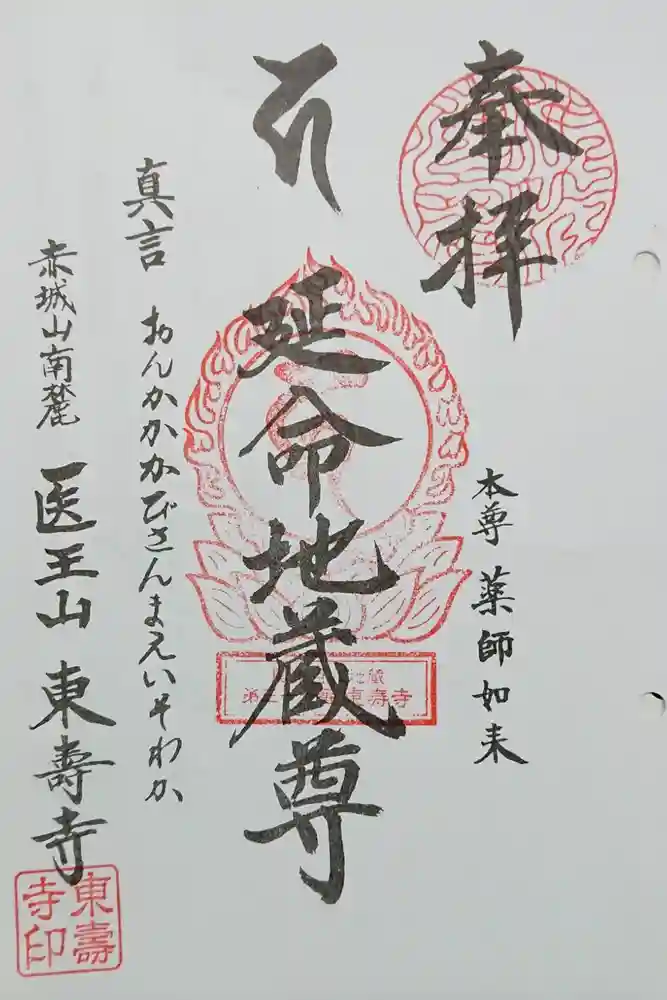 奉拝
本尊 薬師如来
延命地蔵尊
真言 おんかかかびさんまえいそわか
赤城山南麓 医王山 東壽寺
東壽
寺印